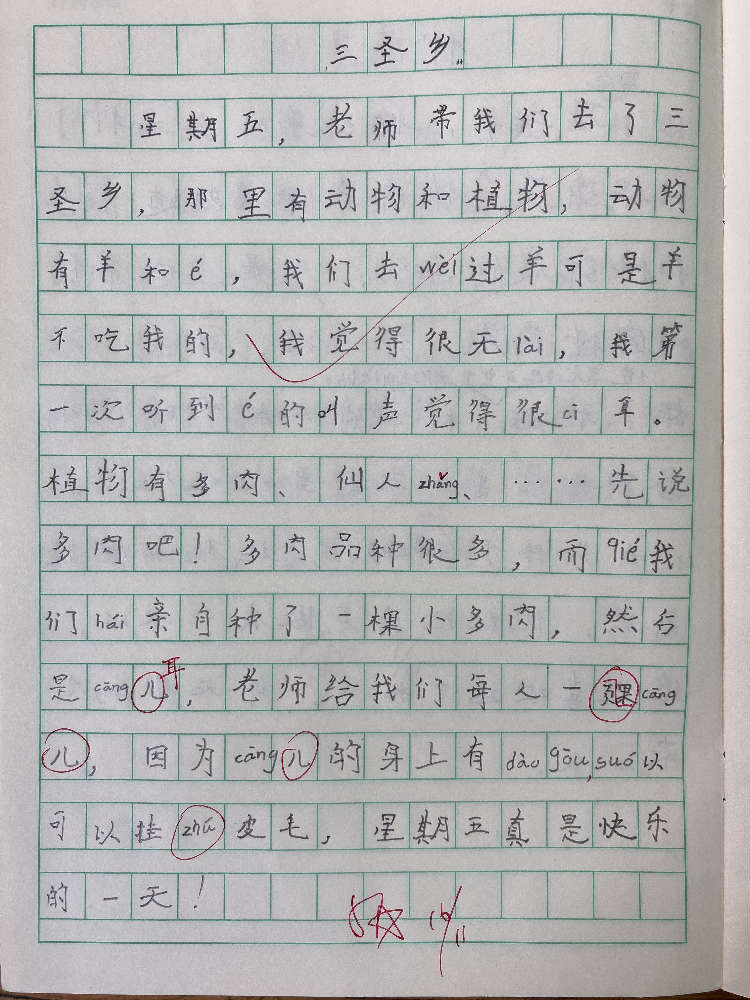 三圣乡
星期五，老师带我们去了三
圣乡，那里有动物和植物，动物
有羊和é，我们去wèi过羊可是羊
不吃我的，我觉得很无lài，我第
一次听到é的叫声觉得很cì耳。
植物有多肉、仙人zhǎng、……先说
多肉吧！多肉品种很多，而qiě我
们hái亲自种了一棵小多肉，然后
是cāng儿耳，老师给我们每人一颗cāng
儿，因为cāng儿的身上有dào gōu，suó以
可以挂zhú皮毛，星期五真是快乐
的一天！